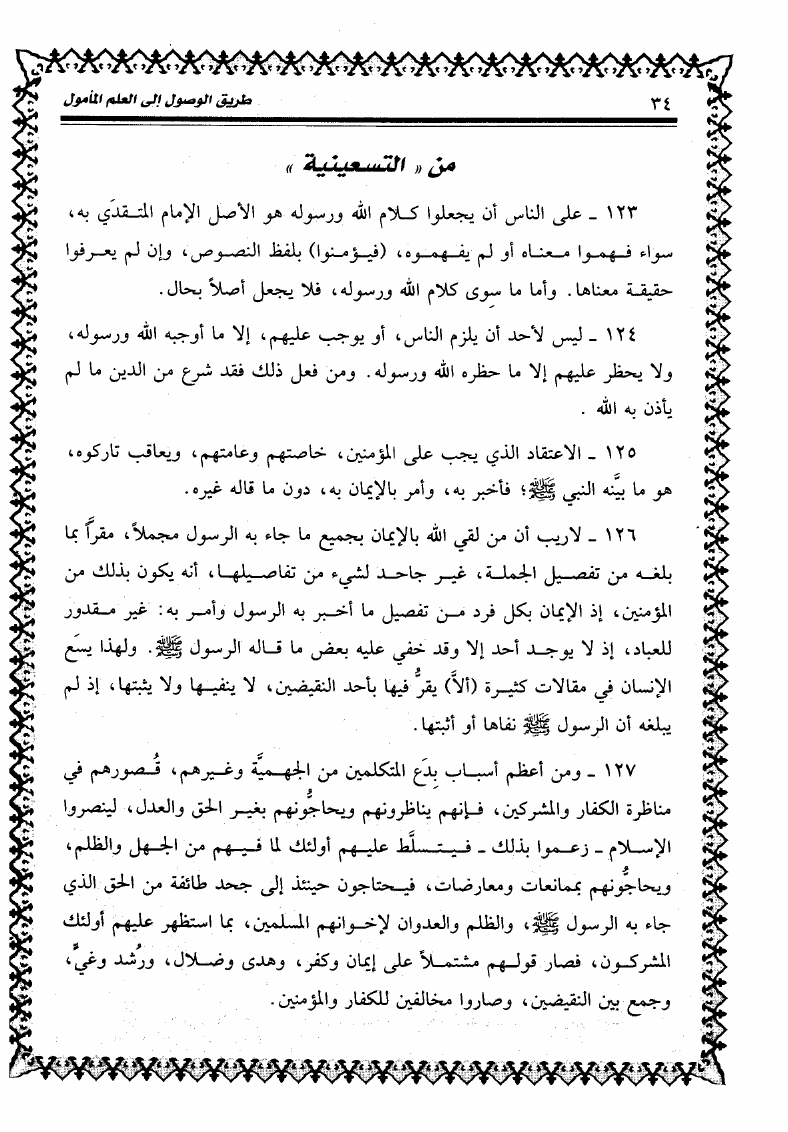 ٣٤
طريق الوصول إلى العلم المأمول
من « التسعينية »
١٢٣ ـ على الناس أن يجعلوا كلام الله ورسوله هو الأصل الإمام المتقدَي به،
سواء فهموا معناه أو لم يفهموه، (فيؤمنوا) بلفظ النصوص، وإن لم يعرفوا
حقيقة معناها. وأما ما سِوى كلام الله ورسوله، فلا يجعل أصلاً بحال.
١٢٤ ـ ليس لأحد أن يلزم الناس، أو يوجب عليهم، إلا ما أوجبه الله ورسوله،
ولا يحظر عليهم إلا ما حظره الله ورسوله. ومن فعل ذلك فقد شرع من الدين ما لم
يأذن به الله .
١٢٥ ـ الاعتقاد الذي يجب على المؤمنين، خاصتهم وعامتهم، ويعاقب تاركوه،
هو ما بيَّنه النبي ﷺ؛ فأخبر به، وأمر بالإيمان به، دون ما قاله غيره.
١٢٦ ـ لاريب أن من لقي الله بالإيمان بجميع ما جاء به الرسول مجملاً، مقرّاً بما
بلغه من تفصيل الجملة، غير جاحد لشيء من تفاصيلها، أنه يكون بذلك من
المؤمنين، إذ الإيمان بكل فرد من تفصيل ما أخبر به الرسول وأمر به: غير مقدور
للعباد، إذ لا يوجد أحد إلا وقد خفي عليه بعض ما قاله الرسول ﷺ. ولهذا يسَع
الإنسان في مقالات كثيرة (ألاَّ) يقرُّ فيها بأحد النقيضين، لا ينفيها ولا يثبتها، إذ لم
يبلغه أن الرسول ﷺ نفاها أو أثبتها.
١٢٧ ـ ومن أعظم أسباب بِدَع المتكلمين من الجهميَّة وغيرهم، قُصورهم في
مناظرة الكفار والمشركين، فإنهم يناظرونهم ويحاجُّونهم بغير الحق والعدل، لينصروا
الإسلام ـ زعموا بذلك ـ فيتسلَّط عليهم أولئك لما فيهم من الجهل والظلم،
ويحاجُّونهم بممانعات ومعارضات، فيحتاجون حينئذ إلى جحد طائفة من الحق الذي
جاء به الرسول ﷺ، والظلم والعدوان لإخوانهم المسلمين، بما استظهر عليهم أولئك
المشركون، فصار قولهم مشتملاً على إيمان وكفر، وهدى وضلال، ورُشد وغيٍّ،
وجمع بين النقيضين، وصاروا مخالفين للكفار والمؤمنين.